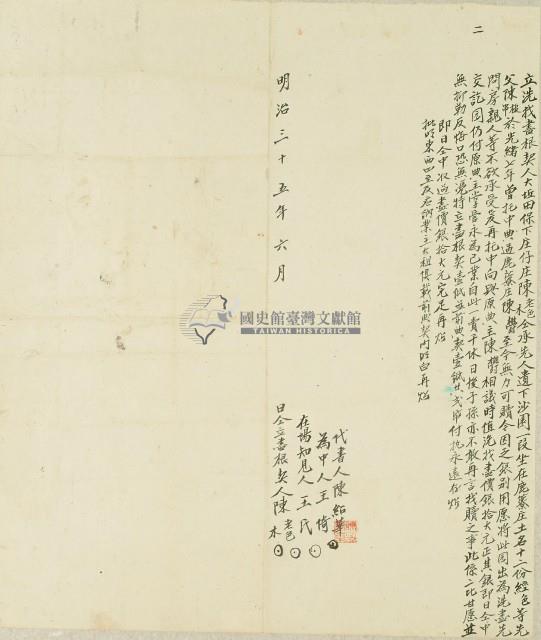 二
立洗找盡根契人大坵田保下庄仔庄陳老色木仝承先人遺下沙園一段坐在鹿藔庄土名十二份經色等先
父陳 於光緒七年曾托中典過鹿藔庄陳 至今無力可贖今因乏銀別用愿將此園出為洗盡先
問房親人等不欲承受爰再托中向與原典主陳 相議時值洗找盡價銀拾大元正其銀即日仝中
交訖園仍付原典主掌管永為己業自此一賣千休日後子孫亦不敢再言找贖之事此係二比甘愿並
無抑勒反悔口恐無憑特立盡根契壹紙並前典契壹紙共弍紙付執永遠存炤
即日仝中收過盡價銀拾大元完足再炤
批明東西四至及名附業主大租俱載前典契內明白再炤
明治三十五年六月
國史館臺灣文獻館
TAIWAN HISTORICA
代書人陳紹華
為中人王倚
在場知見人王氏
日仝立盡根契人陳老色木